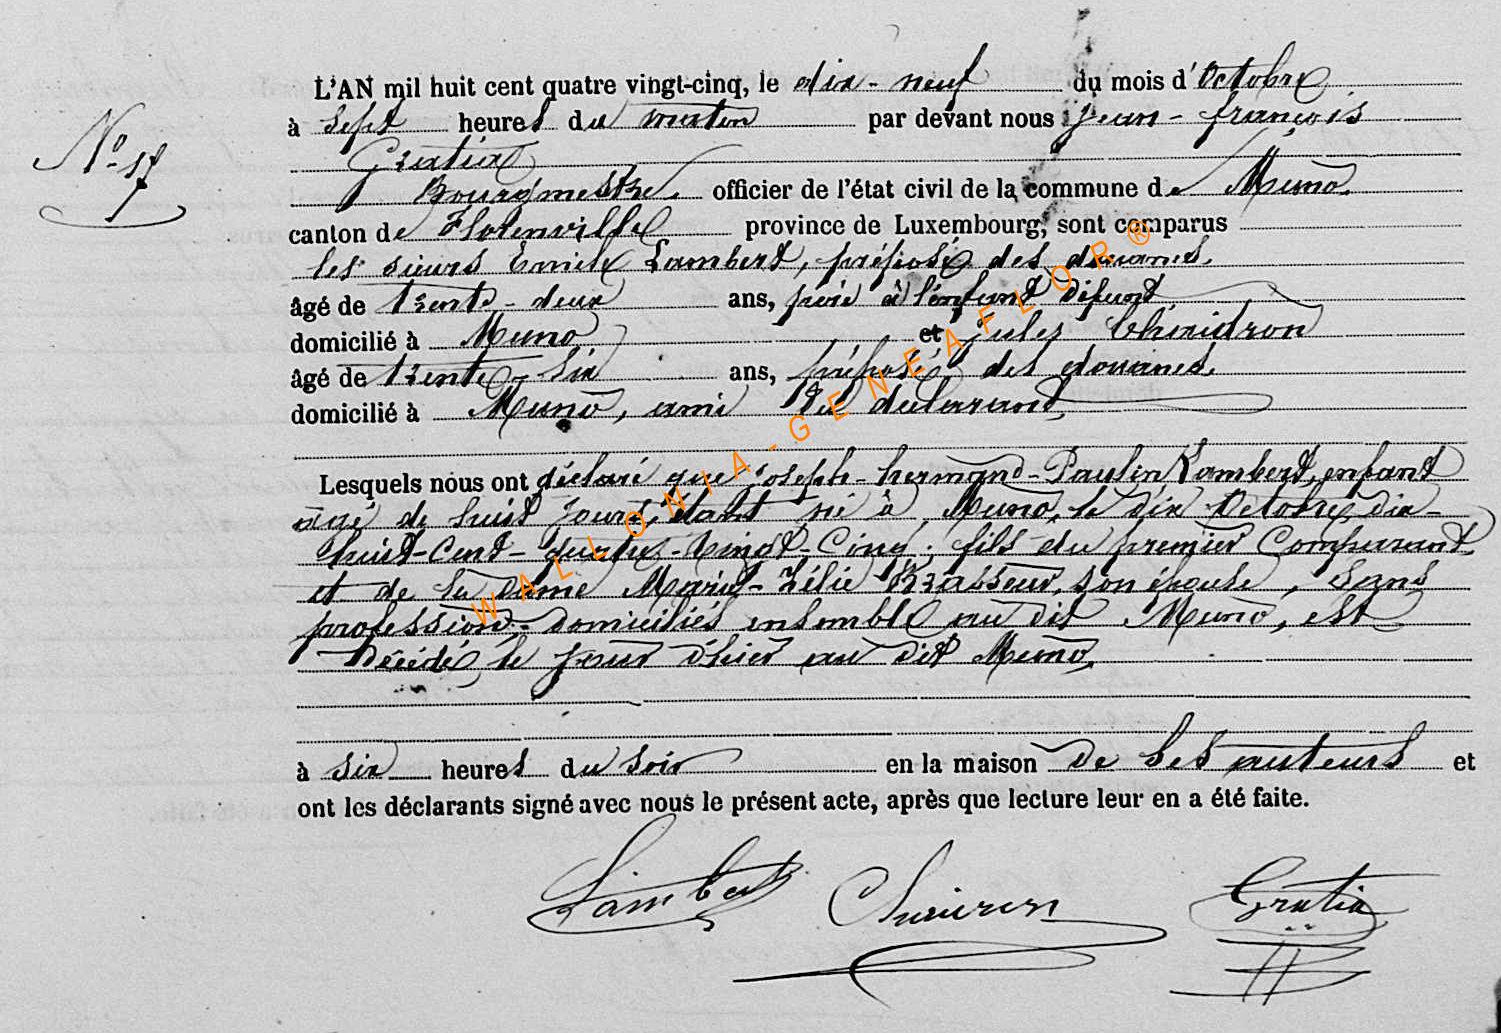 L'AN mil huit cent quatre vingt-cinq, le dix-neuf du mois d'Octobre
à sept heures du matin par devant nous jean-françois
N°
Gratia
Bourgmestre. officier de l'état civil de la commune de Muno.
canton de Florenville province de Luxembourg, sont comparus
les sieurs Emile Lambert, préposé des douanes.
âgé de trente-deux ans, père à l'enfant défunt
domicilié à Muno et jules
âgé de trente-six ans, préposé des douanes.
domicilié à Muno, ami du déclarant.
Lesquels nous ont déclaré que joseph-hermand-Paulin Lambert, enfant
âgé de huit jours, étant né à Muno, le dix Octobre dix-
huit-Cent-quatre-Vingt-Cinq, fils du premier Comparant
et de la Dame Marie-Zélie Brasseur, son épouse, sans
profession, domiciliés ensemble au dit Muno, est
Décédé, le jour d'hier au dit Muno,
à six heures du soir en la maison de ses auteurs et
ont les déclarants signé avec nous le présent acte, après que lecture leur en a été faite.
Lambert Gratia
WALLONIA-GENEAFLOR®